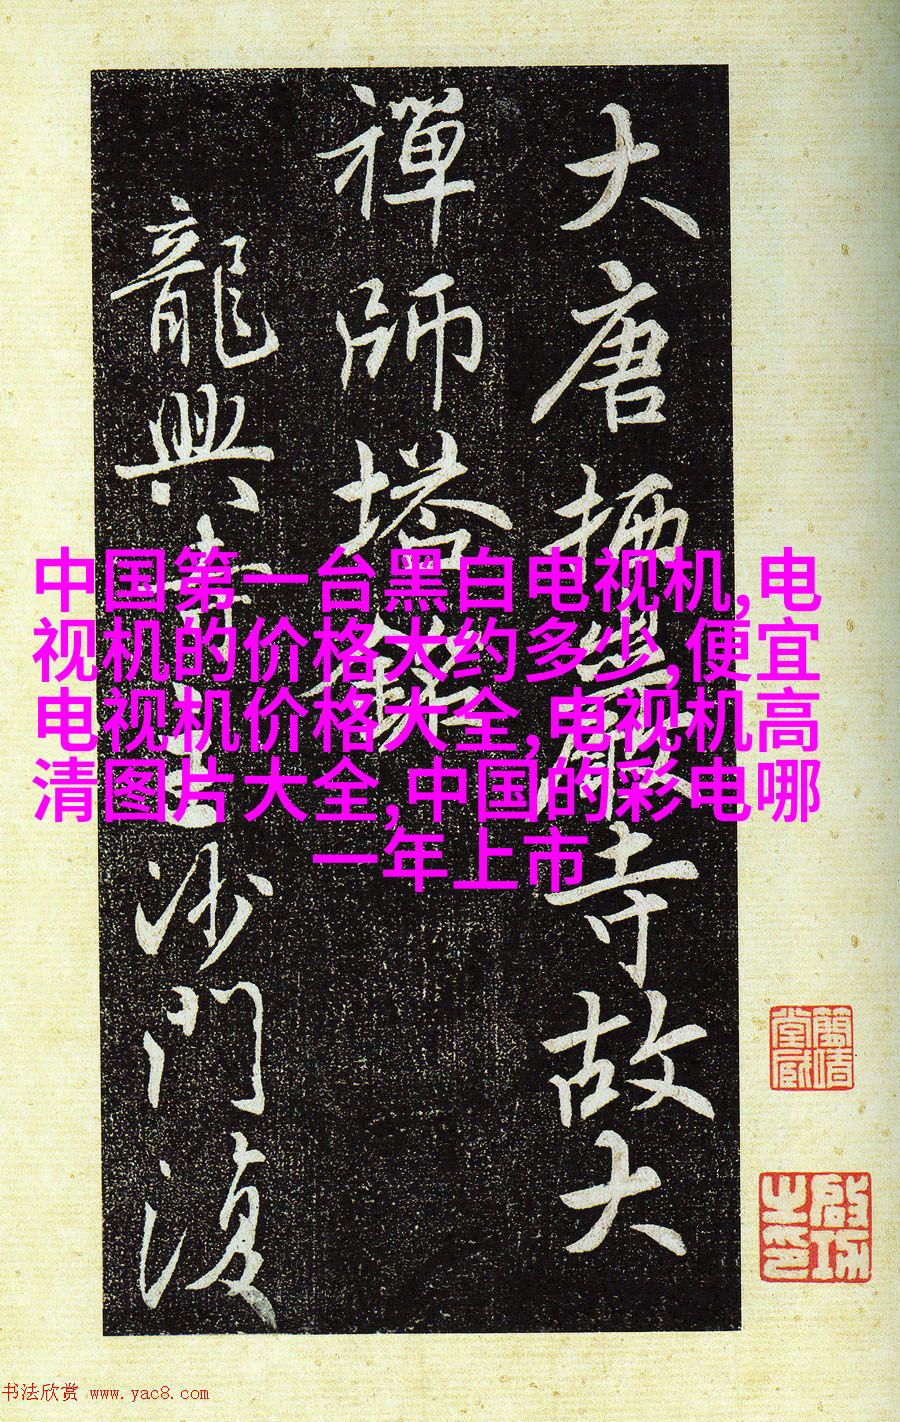 大唐栖巖寺故大
禪師塔銘
龍興寺沙門復
中国第一台黑白电视机,电
视机的价格大约多少,便宜
电视机价格大全,电视机高
清图片大全,中国的彩电哪
一年上市
啟功之印
书法欣赏 www.yac8.com